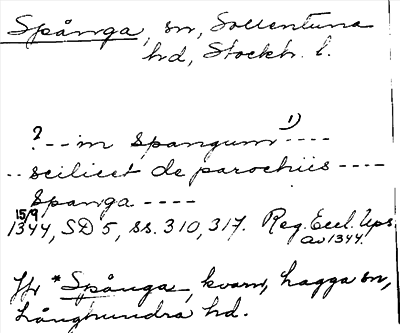 Spånga, sn, Sollentuna
hd, Stockh. l.
? - - in spangum 1) - - - -
- - scilicet de parochiis - - - -
Spanga - - - -
15/9
1344, SD 5, ss. 310, 317. Reg. Eccl. Ups.
av 1344.
Jfr *Spånga, kvarn, Hagga sn,
Långhundra hd.